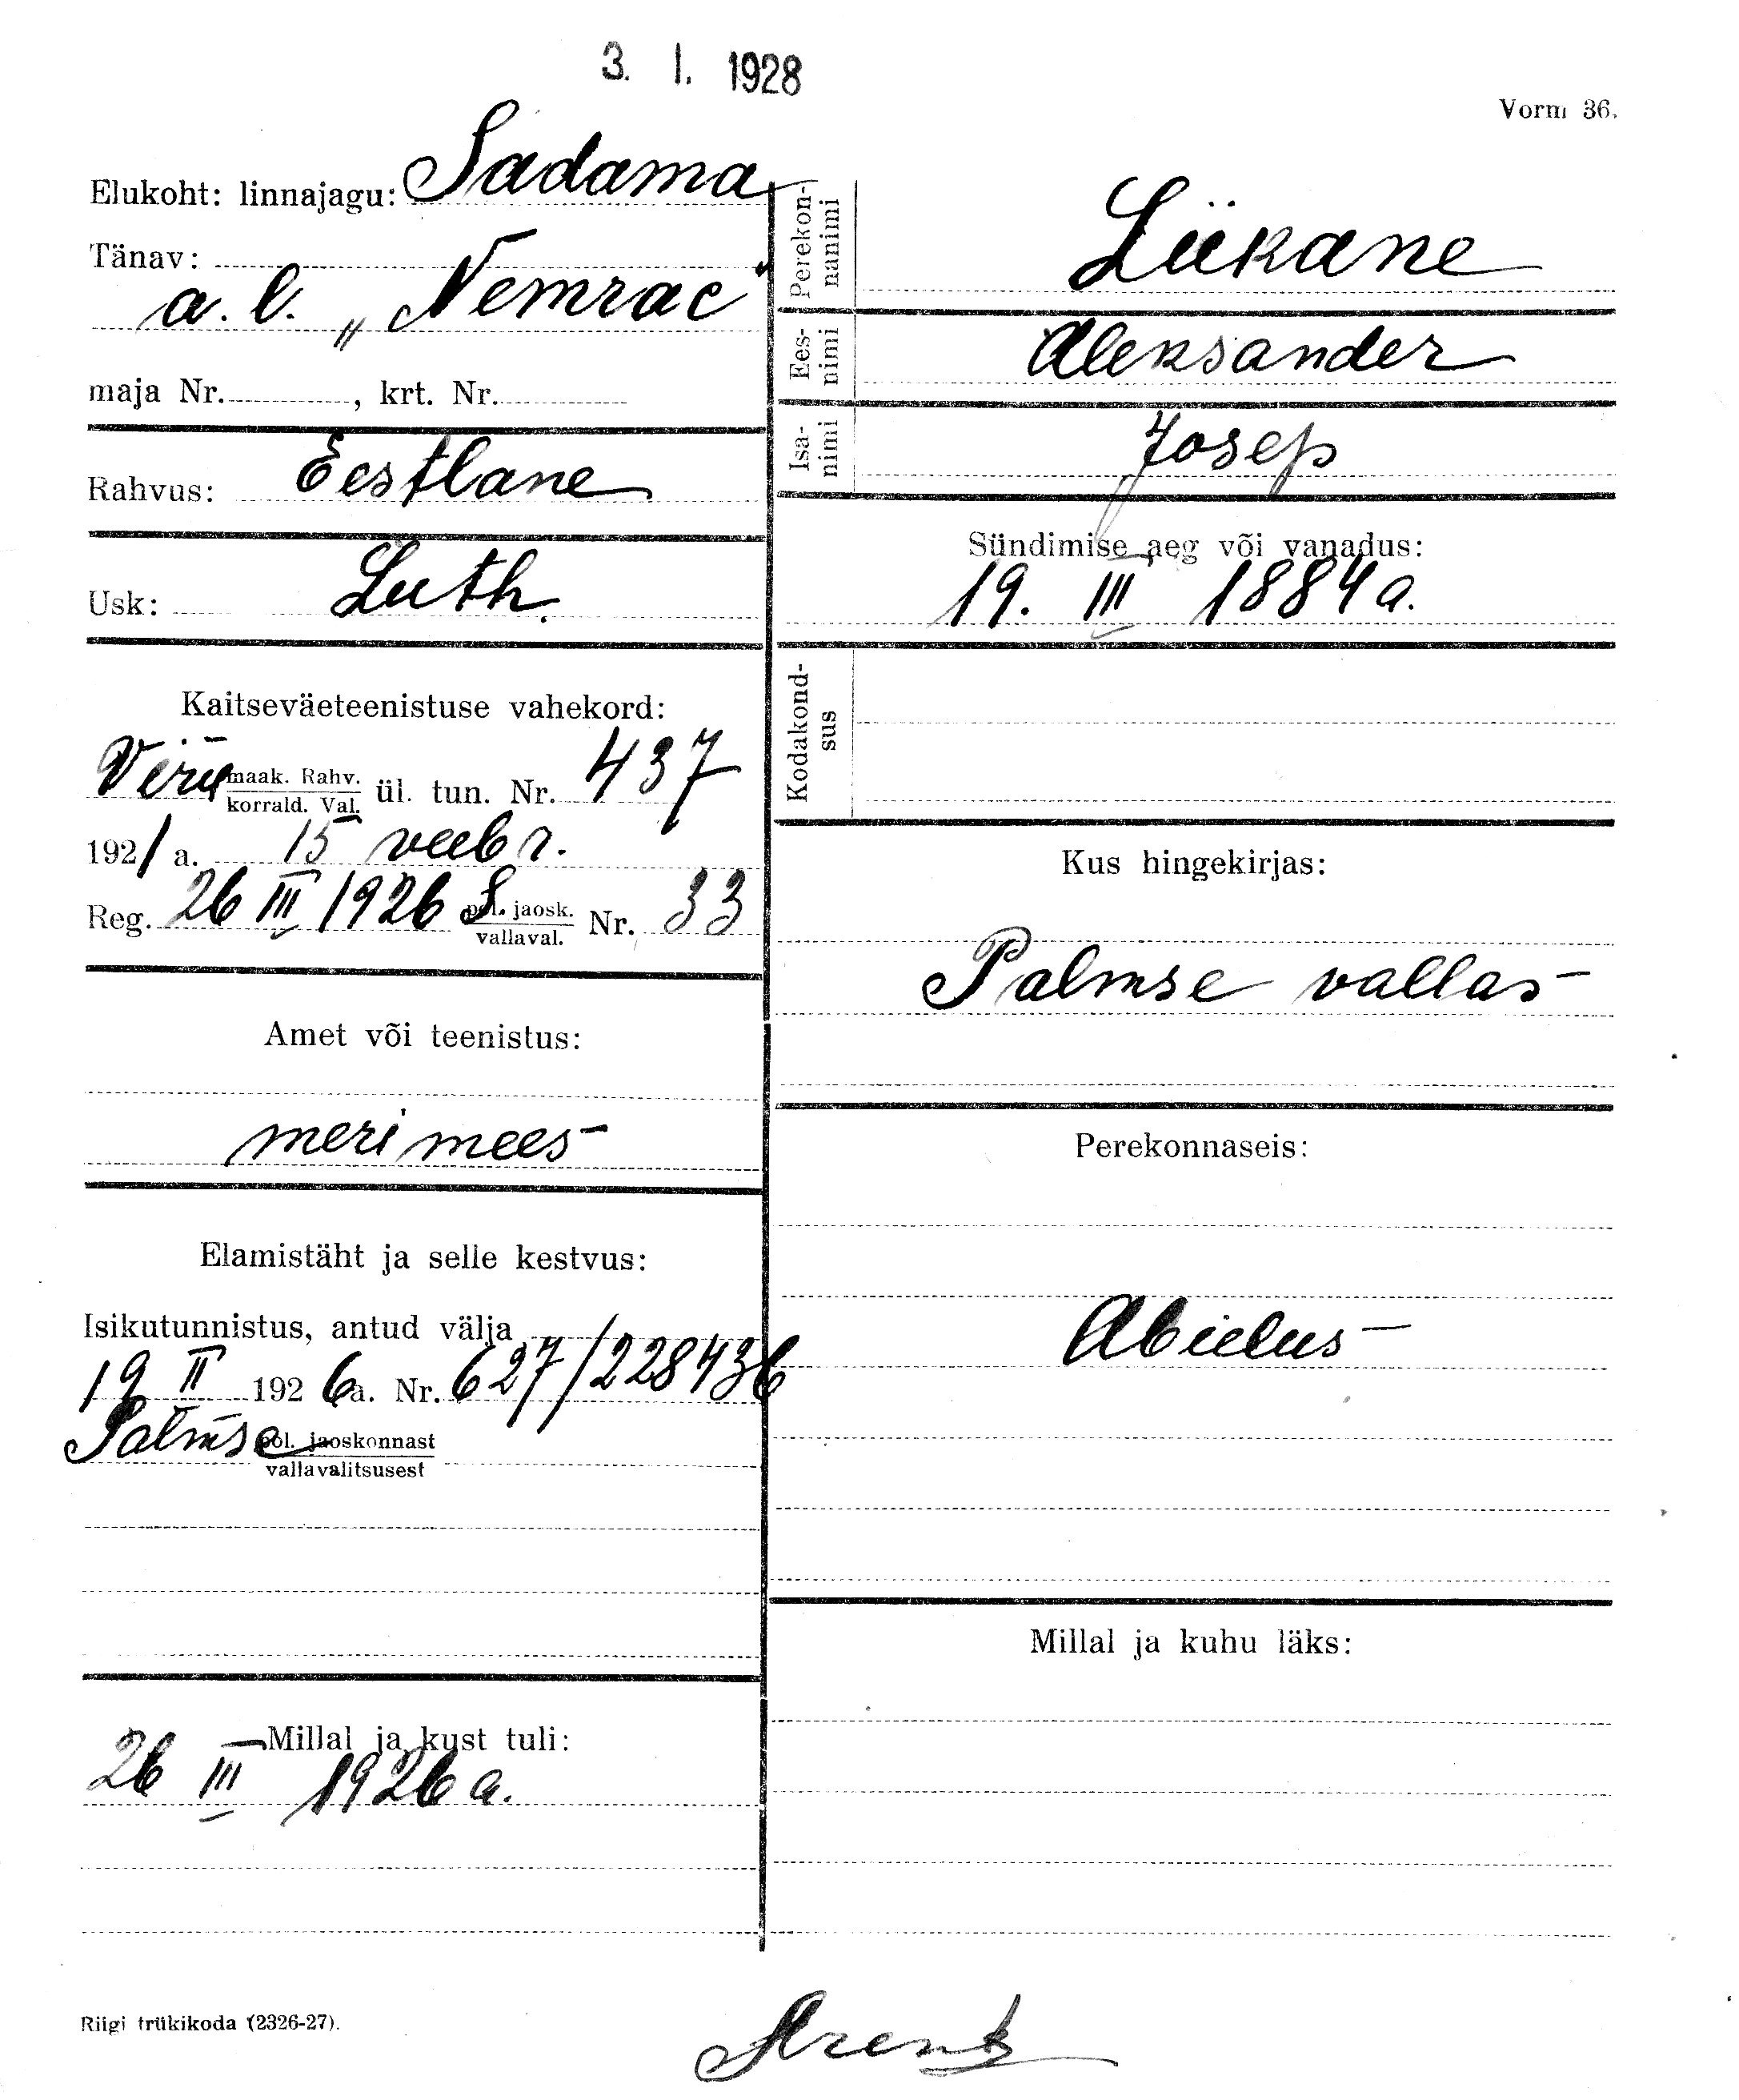 3. I. 1928
Vorm 36.
Elukoht: linnajagu: Sadama
Tänav:
a. l. „Nemrac"
maja Nr. , krt. Nr.
Rahvus: Eestlane
Usk: Luth.
Kaitseväeteenistuse vahekord:
Viru maak. Rahv. ül. tun. Nr. 437
korrald. Val.
1921 a. 15 veebr.
Reg. 26 III 1926 S. pol. jaosk. Nr. 33
vallaval.
Amet või teenistus:
meri mees
Elamistäht ja selle kestvus:
Isikutunnistus, antud välja
19 II 1926 a. Nr. 627/228436
Palmse pol. jaoskonnast
vallavalitsusest
Millal ja kust tuli:
26 III 1926 a.
Perekon-
nanimi
Liikane
Ees-
nimi
Aleksander
Isa-
nimi
Josep
Sündimise aeg või vanadus:
19. III 1884 a.
Kodakond-
sus
Kus hingekirjas:
Palmse vallas
Perekonnaseis:
Abielus
Millal ja kuhu läks:
Riigi trükikoda (2326-27).